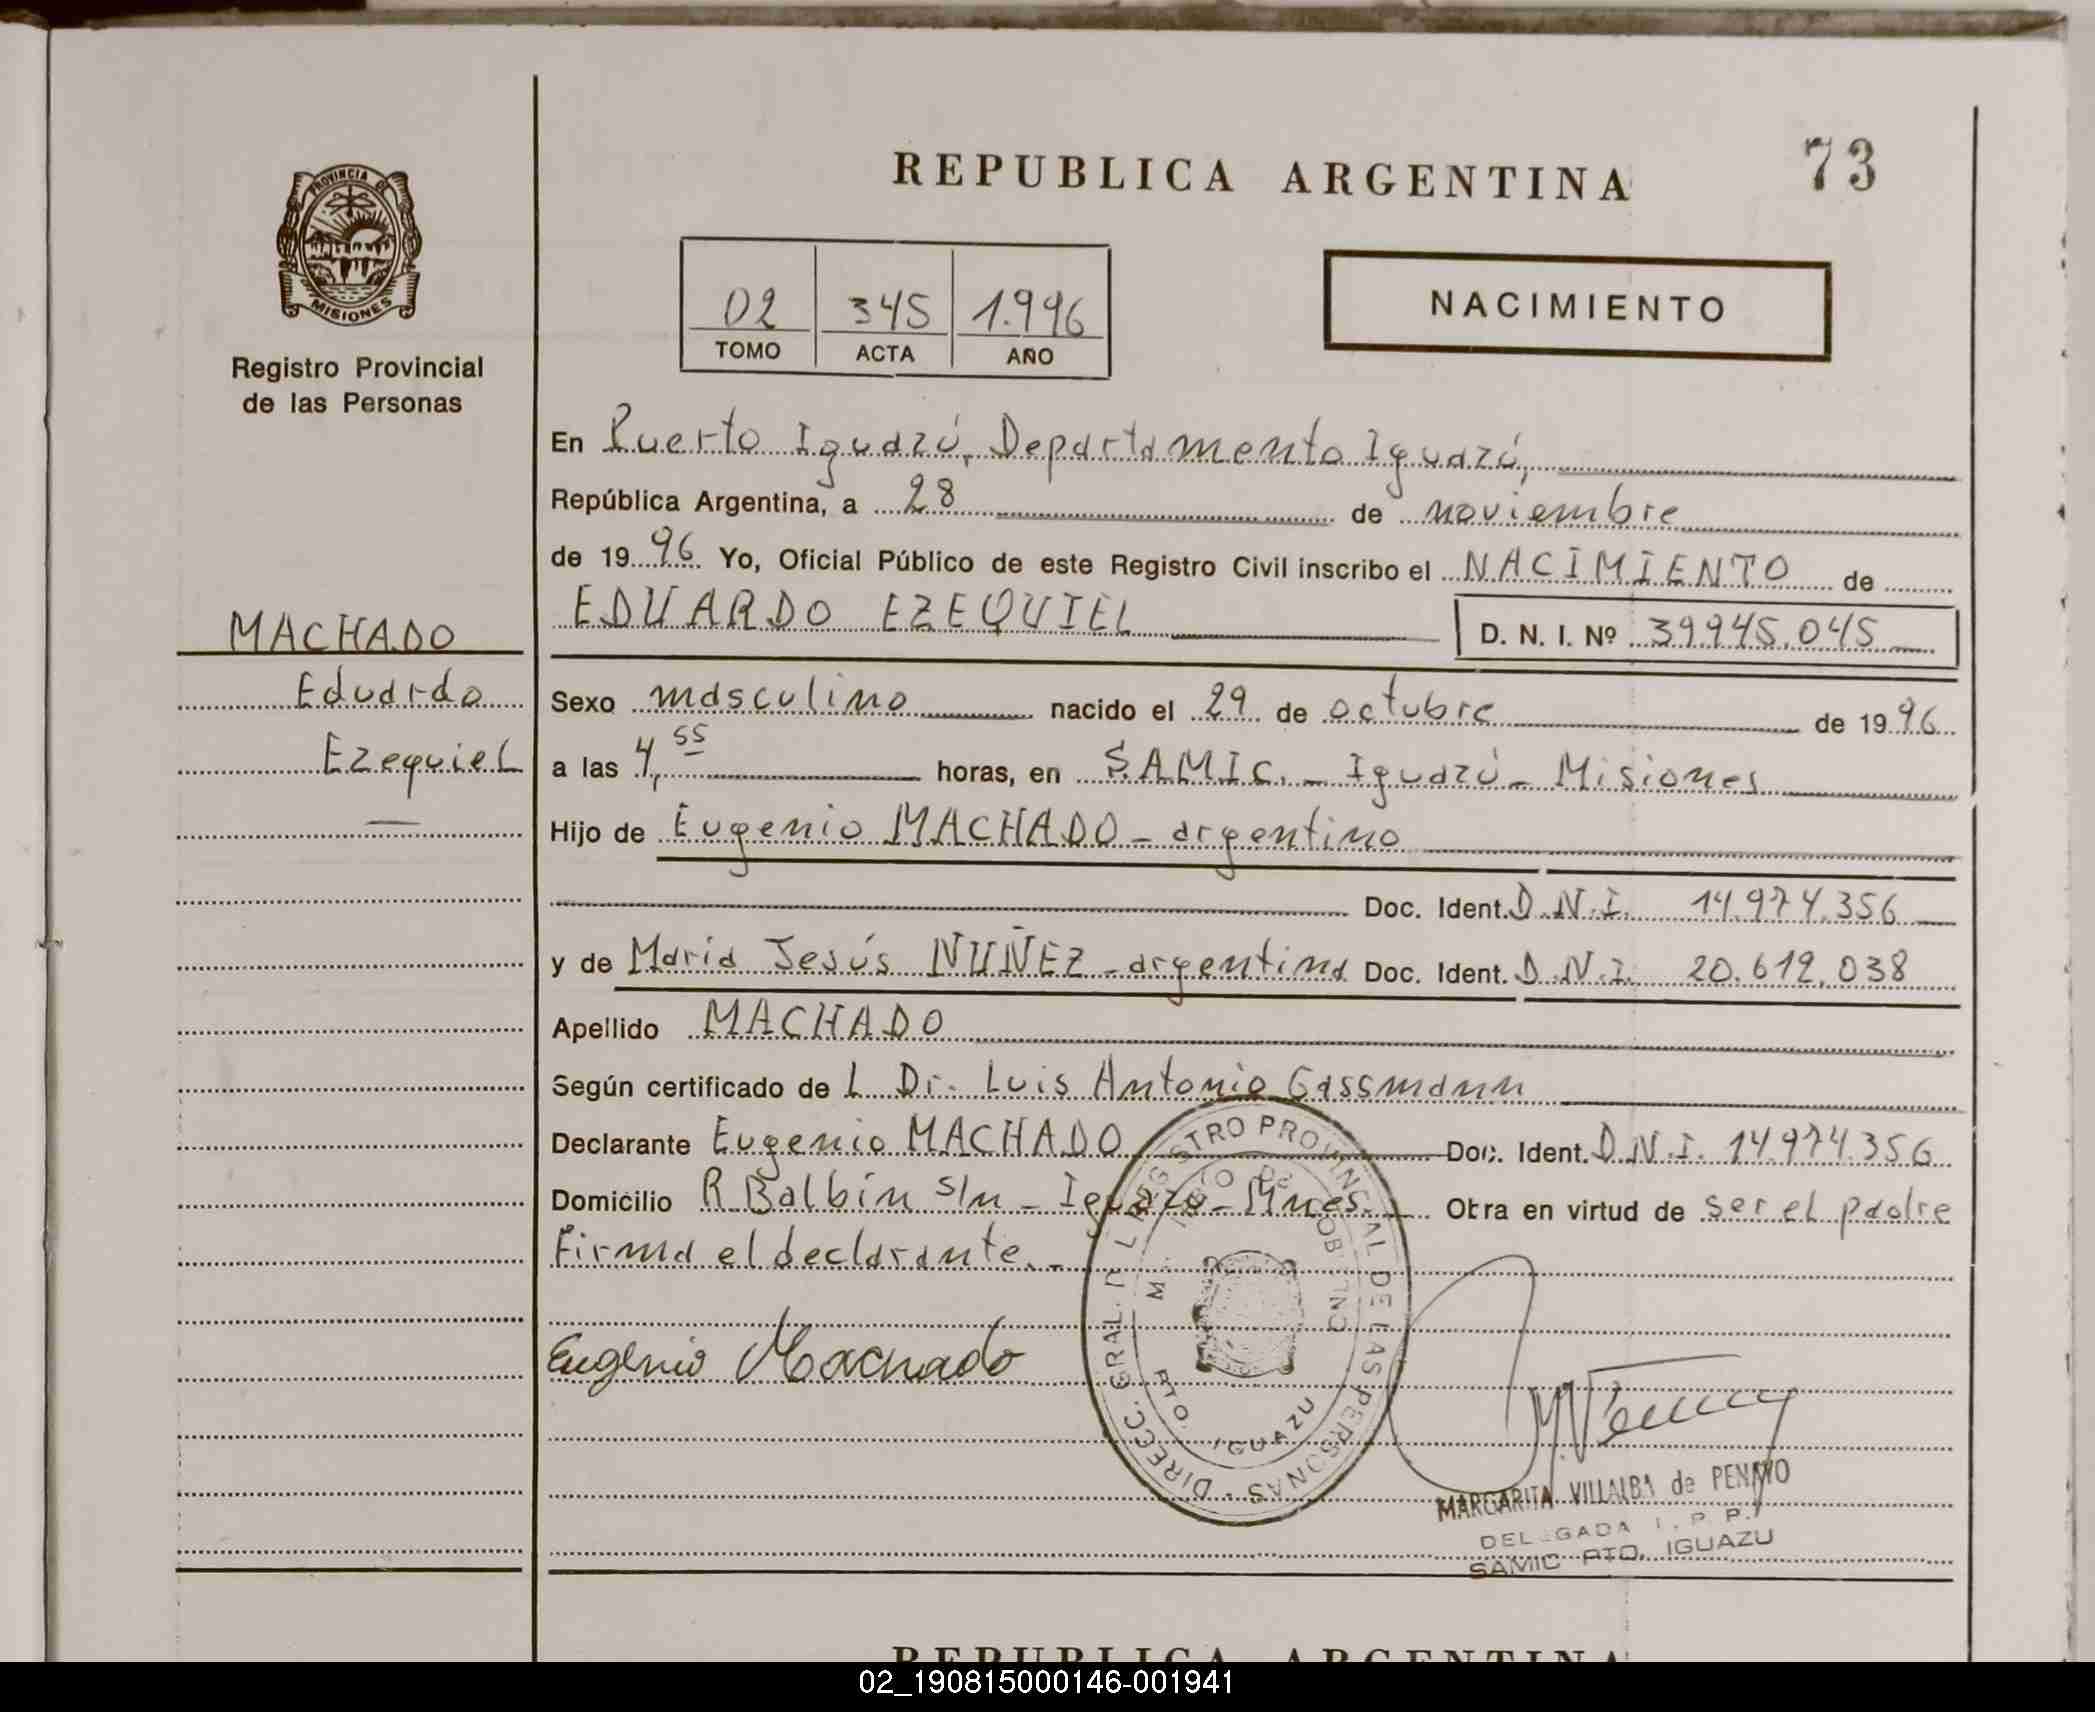 REPUBLICA ARGENTINA
73
PROVINCIA DE
MISIONES
Registro Provincial
de las Personas
02 345 1.996
TOMO ACTA AÑO
NACIMIENTO
En Puerto Iguazú, Departamento Iguazú,
República Argentina, a 28 de noviembre
de 19 96 Yo, Oficial Público de este Registro Civil inscribo el NACIMIENTO de
EDUARDO EZEQUIEL D. N. I. Nº 39.945.045
MACHADO
Eduardo
Ezequiel
Sexo masculino nacido el 29 de octubre de 19 96
a las 4,55 horas, en S.AMIC. - Iguazú - Misiones
Hijo de Eugenio MACHADO - argentino
Doc. Ident. D.N.I. 14.974.356
y de María Jesús NUÑEZ - argentina Doc. Ident. D.N.I. 20.612.038
Apellido MACHADO
Según certificado de L Dr. Luis Antonio Gassmann
Declarante Eugenio MACHADO Doc. Ident. D.N.I. 14.974.356
Domicilio R. Balbín s/n - Iguazú - Mnes. Obra en virtud de ser el padre
Firma el declarante. -
Eugenio Machado
DIRECC. GRAL. DEL REGISTRO PROVINCIAL DE LAS PERSONAS
PTO. IGUAZU
MARGARITA VILLALBA de PENAYO
DELEGADA P. P.
SAMIC PTO. IGUAZU
REPUBLICA ARGENTINA
02_190815000146-001941